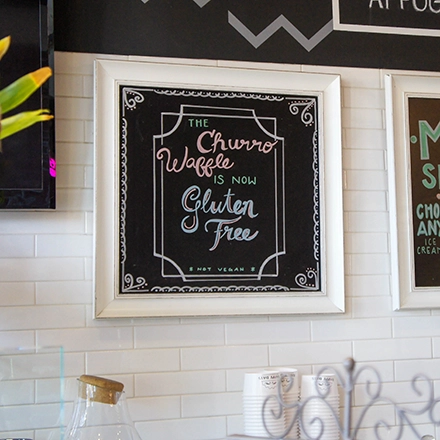 THE
Churro
Waffle
IS NOW
Gluten
Free
NOT VEGAN
CHO
ANY
ICE
CREAM